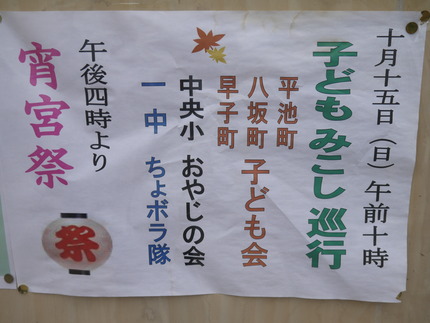 十月十五日(日)午前十時
子どもみこし巡行
平池町
八坂町 子ども会
早子町
中央小 おやじの会
一中 ちょボラ隊
午後四時より
宵宮祭
祭